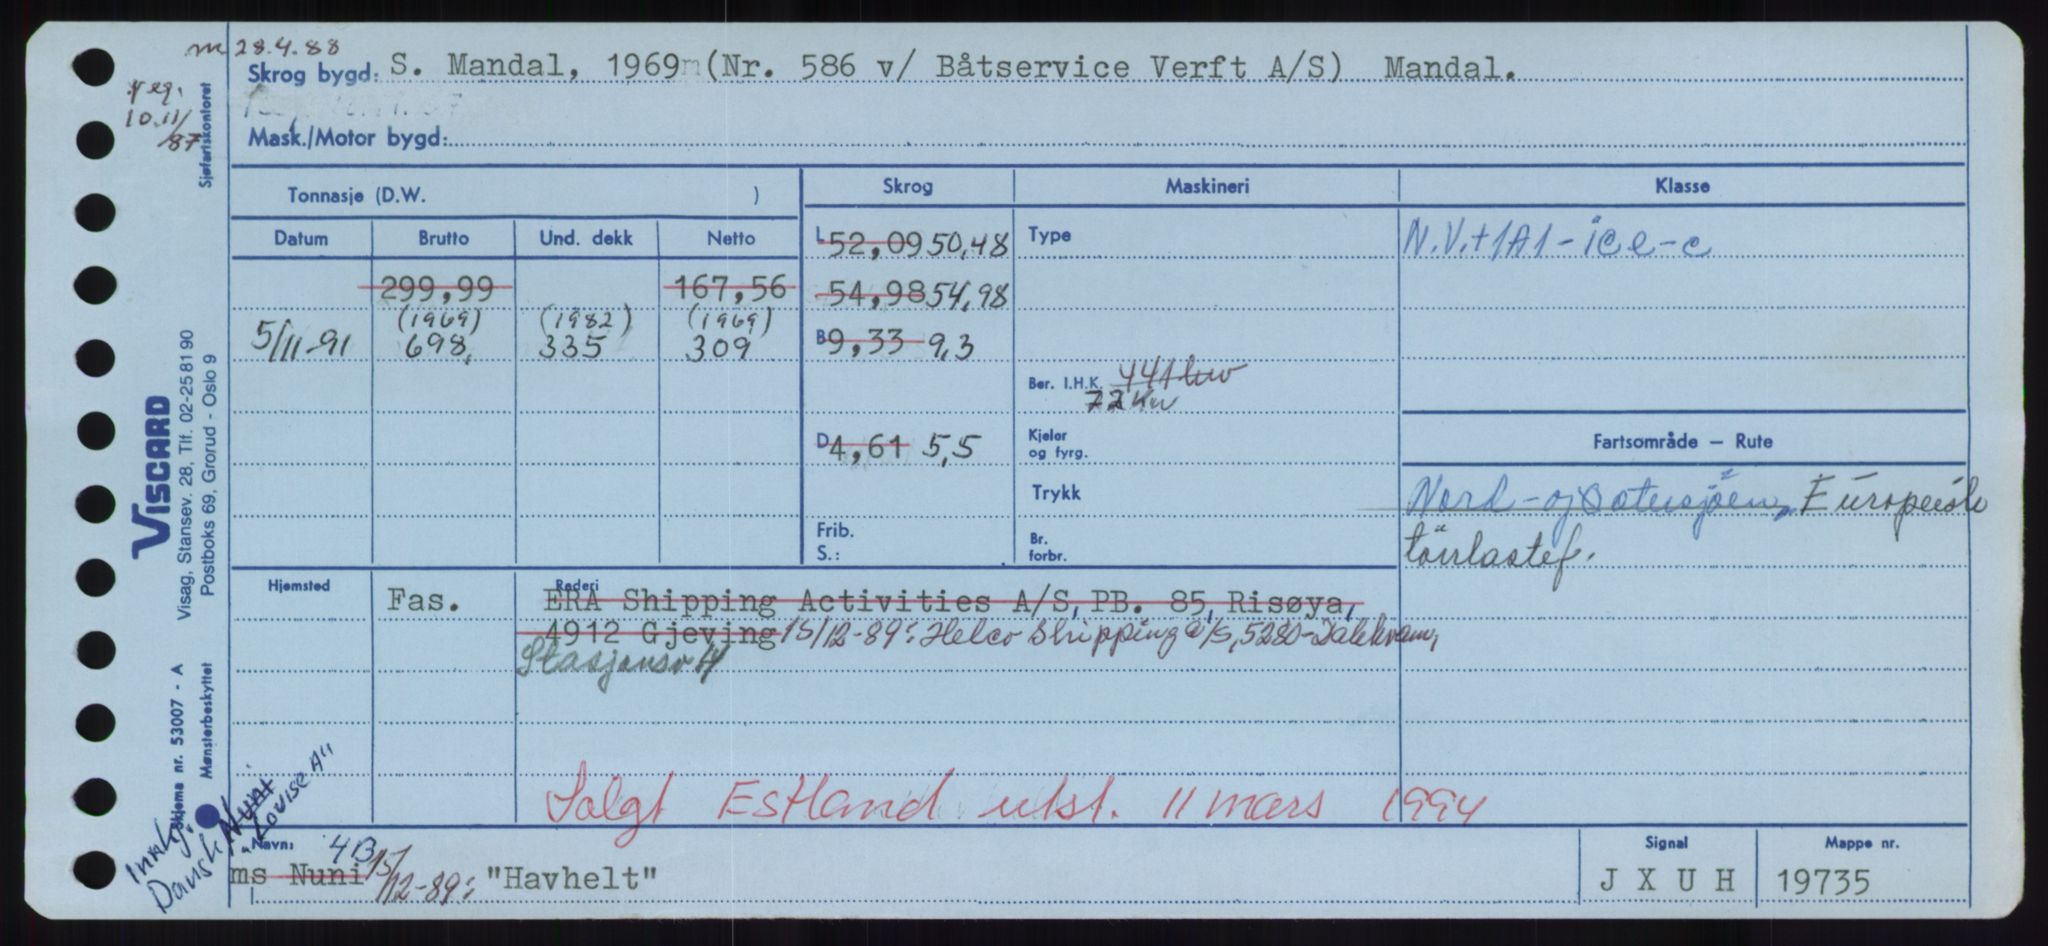 m 28.4.88
Skrog bygd: S. Mandal, 1969 (Nr. 586 v/ Båtservice Verft A/S) Mandal.
reg.
10.11/
87
Mask./Motor bygd:
Sjøfartskontoret
Tonnasje (D.W. ) Skrog Maskineri Klasse
Datum Brutto Und. dekk Netto
L 52,09 50,48 Type N.V.+1A1-ice-c
299,99 167,56 54,98 54,98
(1969) (1982) (1969)
5/11-91 698, 335 309 B 9,33 9,3
Ber. I.H.K. 441 kw
72 Kw
D 4,61 5,5 Kjelar
og fyrg.
Fartsområde – Rute
Trykk Nord- og Østersjøen, Europeisk
tørrlastef.
Frib.
S.:
Br.
forbr.
Hjemsted Fas. Rederi
ERA Shipping Activities A/S, PB. 85, Risøya,
4912 Gjeving 15/12-89: Helco Shipping a/s, 5280-Dalekvam,
Stasjonsv 4
Solgt Estland utsl. 11 mars 1994
Navn: 4B
ms Nuni 15/12-89: "Havhelt"
Signal
J X U H
Mappe nr.
19735
Dansk Nuni
"Louise A"
VISCARD
Visag, Stansev. 28, Tlf. 02-25 81 90
Postboks 69, Grorud - Oslo 9
Skjema nr. 53007 - A
Mønsterbeskyttet